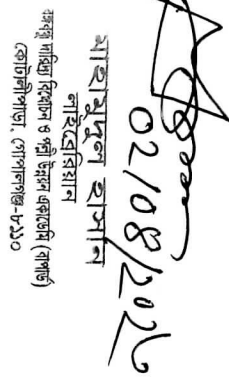 02/08/2026
মাহমুদুল হাসান
লাইব্রেরিয়ান
দারিদ্র্য বিমোচন ও পল্লী উন্নয়ন একাডেমি (বাপার্ড)
কোটালীপাড়া, গোপালগঞ্জ-৮১১০